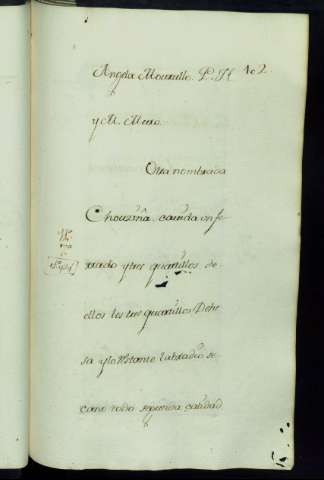 Angela Mourullo. P. N. 102
y M. Muro.
Otra nombrada
Chousiña cavida un fe-
rrado y tres quartillos de
ellos los tres quartillos Dehe
sa y lo restante Labradio se-
cano todo segunda calidad